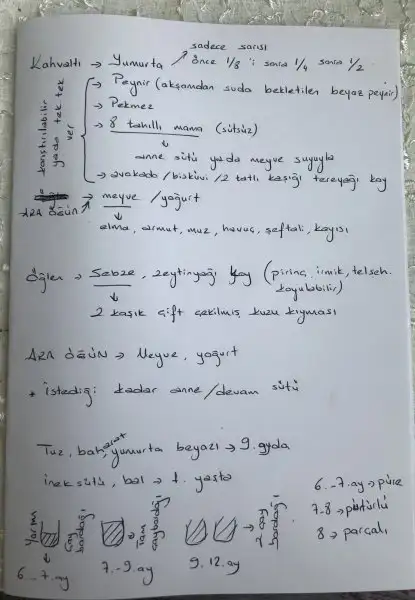 sadece sarısı
Kahvaltı → Yumurta ↗ önce 1/8 'i sonra 1/4 sonra 1/2
→ Peynir (akşamdan suda bekletilen beyaz peynir)
→ Pekmez
→ 8 tahıllı mama (sütsüz)
↓
anne sütü ya da meyve suyuyla
→ avakado / bisküvi / 2 tatlı kaşığı tereyağı koy
karıştırılabilir
yada tek tek
ver
ARA ÖĞÜN ↗ → meyve / yoğurt
↓
elma, armut, muz, havuç, şeftali, kayısı
Öğlen → Sebze, zeytinyağı koy (pirinç, irmik, telşeh.
koyulabilir)
↓
2 kaşık çift çekilmiş kuzu kıyması
ARA ÖĞÜN → Meyve, yoğurt
* istediği kadar anne / devam sütü
Tuz, baharat, yumurta beyazı → 9. ayda
inek sütü, bal → 1. yaşta
6.-7. ay → püre
7-8 → pütürlü
8 → parçalı
Yarım
çay
bardağı
Tam
çaybardağı
2 çay
bardağı
6.-7. ay
7.-9. ay
9. 12. ay